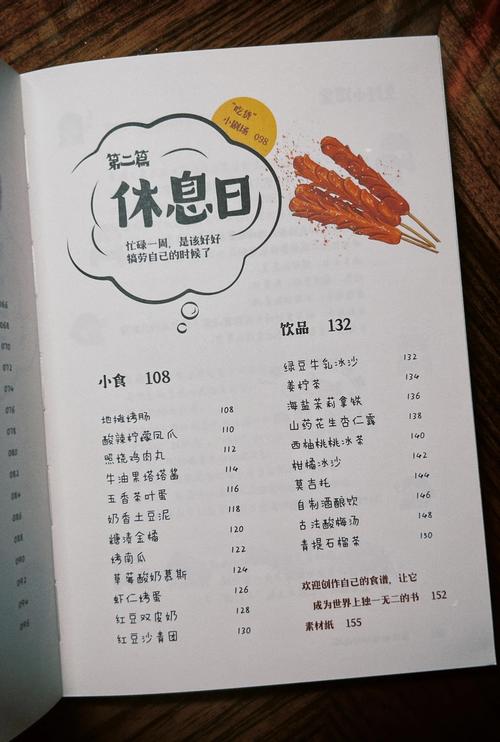 "吃货"
小剧场 098
第二篇
休息日
忙碌一周，是该好好
犒劳自己的时候了
小食 108
地摊烤肠 108
酸辣柠檬凤爪 110
照烧鸡肉丸 112
牛油果塔塔酱 114
五香茶叶蛋 116
奶香土豆泥 118
糖渍金橘 120
烤南瓜 122
草莓酸奶慕斯 124
虾仁烤蛋 126
红豆双皮奶 128
红豆沙青团 130
饮品 132
绿豆牛乳冰沙 132
姜柠茶 134
海盐茉莉拿铁 136
山药花生杏仁露 138
西柚桃桃冰茶 140
柑橘冰沙 142
莫吉托 144
自制酒酿饮 146
古法酸梅汤 148
青提石榴茶 150
欢迎创作自己的食谱，让它
成为世界上独一无二的书 152
素材纸 155
066
068
070
072
074
076
078
082
084
086
088
090
092
094
096